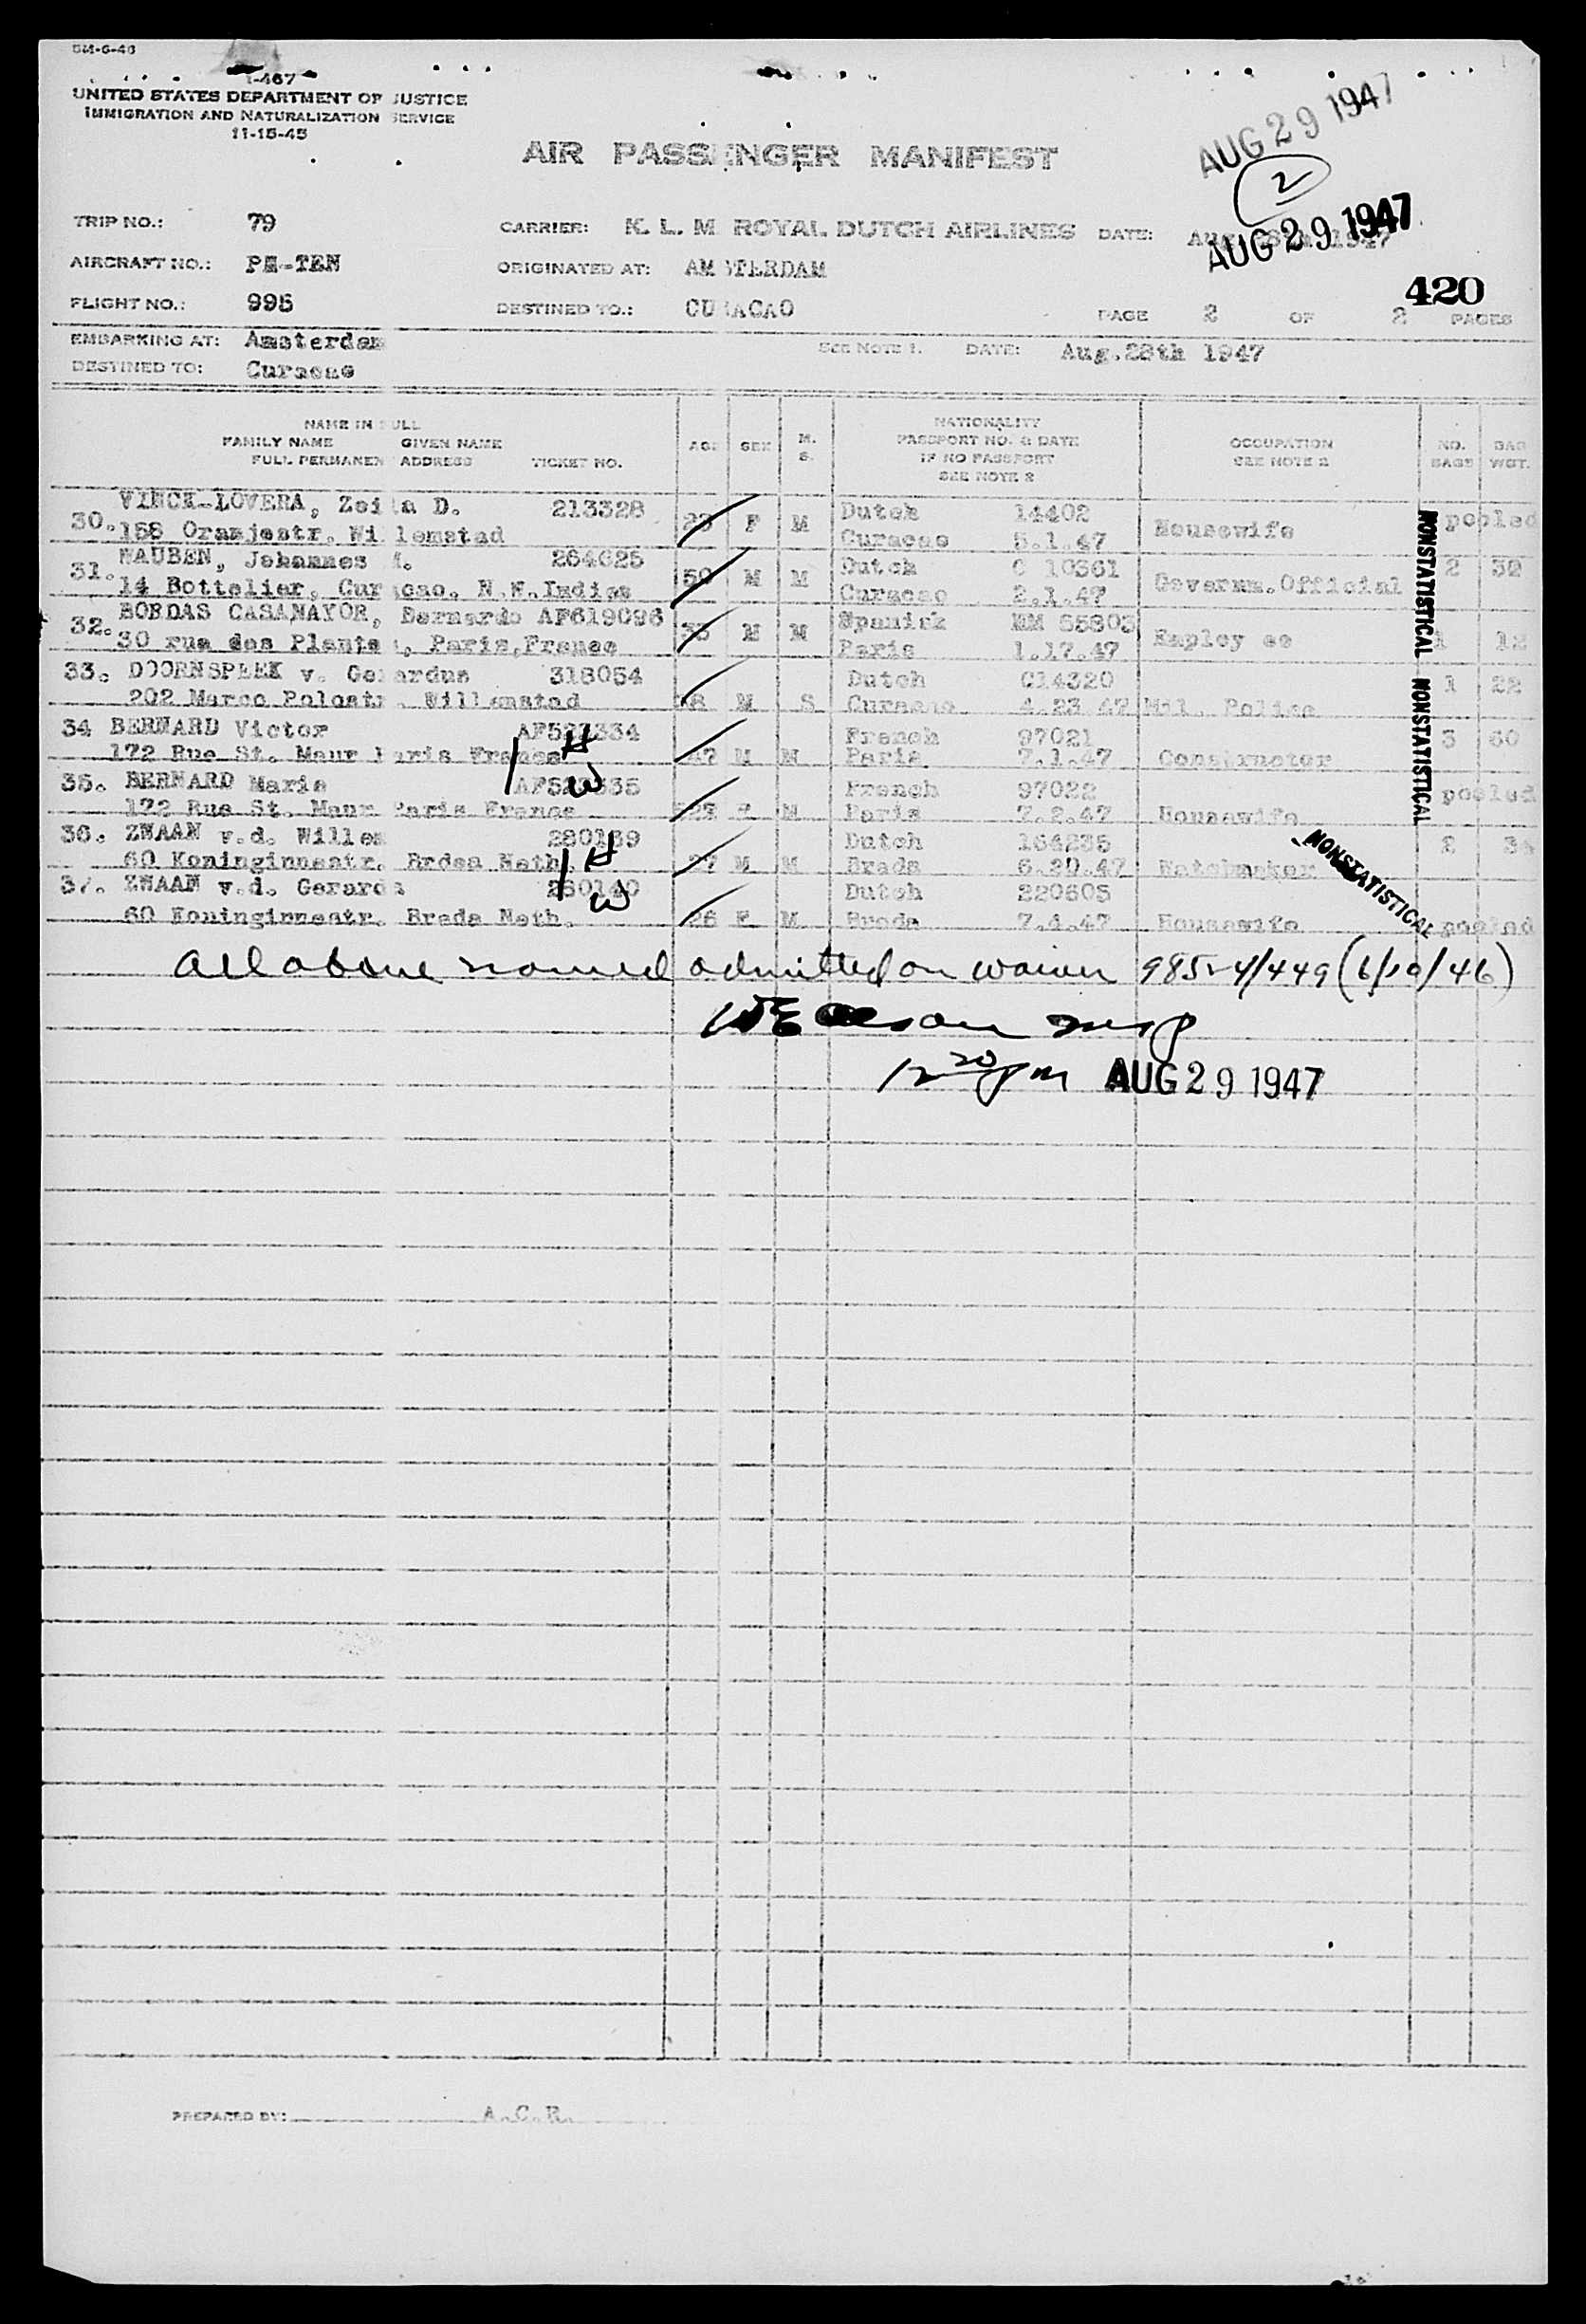 I-467
UNITED STATES DEPARTMENT OF JUSTICE
IMMIGRATION AND NATURALIZATION SERVICE
11-15-45
AIR PASSENGER MANIFEST
AUG 29 1947
2
AUG 29 1947
TRIP NO.: 79 CARRIER: K. L. M. ROYAL DUTCH AIRLINES DATE: 1947
AIRCRAFT NO.: PH-TEN ORIGINATED AT: AMSTERDAM
420
FLIGHT NO.: 995 DESTINED TO.: CURACAO PAGE 2 OF 2 PAGES
EMBARKING AT: Amsterdam SEE NOTE 1. DATE: Aug.28th 1947
DESTINED TO: Curacao
NAME IN FULL
FAMILY NAME GIVEN NAME
FULL PERMANENT ADDRESS TICKET NO. AGE SEX M. S. NATIONALITY
PASSPORT NO. & DATE
IF NO PASSPORT
SEE NOTE 2 OCCUPATION
SEE NOTE 2 NO. BAGS BAG WGT.
30. VINCK-LOVERA, Zoila D. 213328 23 F M Dutch 14402 Housewife pooled
158 Oranjestr. Willemstad Curacao 5.1.47
31. WAUBEN, Johannes 264625 50 M M Dutch C 10361 Governm.Official 2 32
14 Bottelier, Curacao. N.W.Indies Curacao 2.1.47
32. BORDAS CASAMAYOR, Bernardo AF619096 35 M M Spanish MM 55803 Employee 1 12
30 rue des Plantes, Paris,France Paris 1.17.47
33. DOORNSPEEK v. Gerardus 318054 Dutch C14320 1 22
202 Marco Polostr. Willemstad M S Curacao 4.23 47 Mil. Police
34 BERNARD Victor French 97021 3 60
172 Rue St. Maur Paris France 47 M M Paris 7.1.47 Constructor
H
W
35. BERNARD Maria French 97022 pooled
172 Rue St. Maur Paris France F M Paris 7.2.47 Housewife
36. ZWAAN v.d. Willem 280139 Dutch 164235 2 34
60 Koninginnestr. Breda Neth. 27 M M Breda 6.20.47 Watchmaker
H
W
37. ZWAAN v.d. Gerarda 280140 Dutch 220605
60 Koninginnestr. Breda Neth. 26 F M Breda 7.4.47 Housewife pooled
NONSTATISTICAL
NONSTATISTICAL
NONSTATISTICAL
All above named admitted on waiver 985-4/449 (6/10/46)
12 20 pm AUG 29 1947
PREPARED BY: A.C.R.